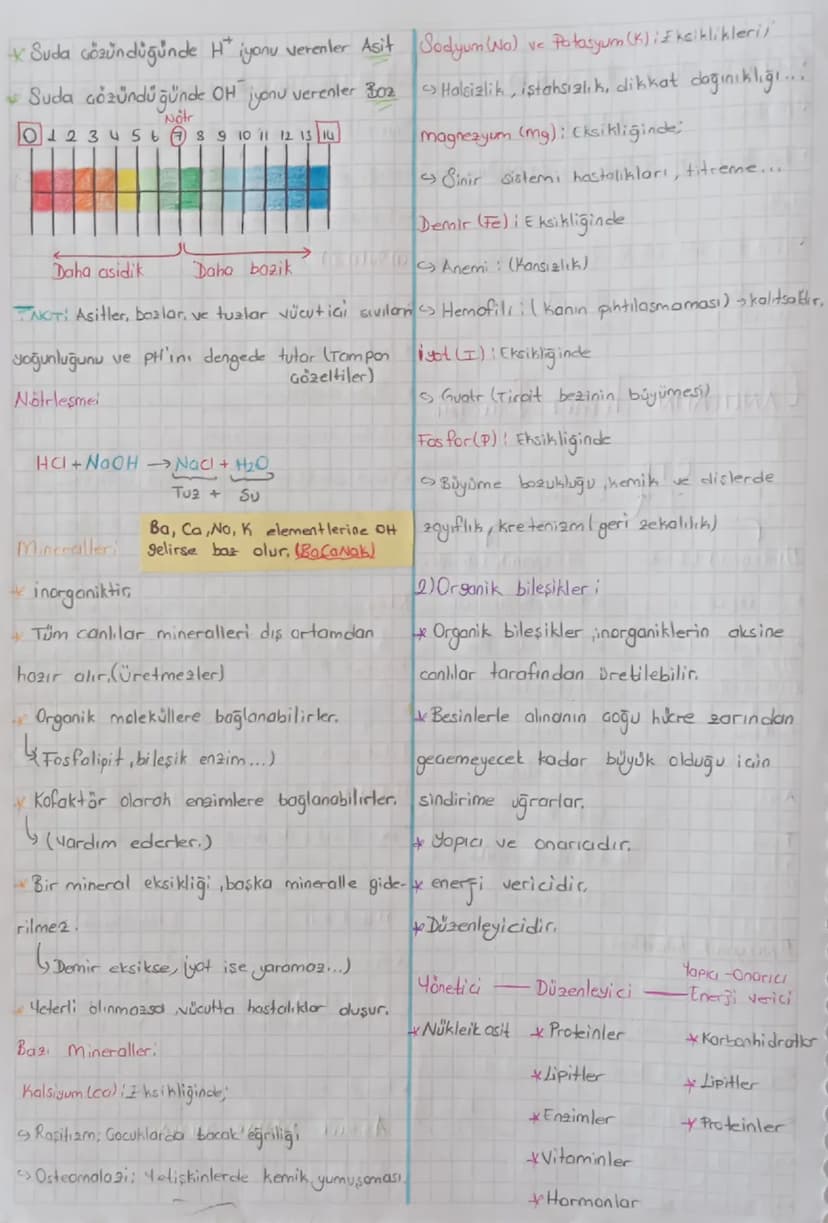 * Suda çözündüğünde H⁺ iyonu verenler Asit
* Suda çözündüğünde OH⁻ iyonu verenler Baz
Nötr
0 1 2 3 4 5 6 7 8 9 10 11 12 13 14
Daha asidik Daha bazik
NOT: Asitler, bazlar, ve tuzlar vücut içi sıvıların
yoğunluğunu ve pH'ını dengede tutar (Tampon
Çözeltiler)
Nötrleşme:
HCl + NaOH → NaCl + H₂O
Tuz + Su
Ba, Ca, Na, K elementlerine OH
gelirse baz olur. (BaCaNaK)
Mineraller:
* inorganiktir.
* Tüm canlılar mineralleri dış ortamdan
hazır alır. (üretmezler)
* Organik moleküllere bağlanabilirler.
↳ (Fosfolipit, bileşik enzim...)
* Kofaktör olarak enzimlere bağlanabilirler.
↳ (Yardım ederler.)
* Bir mineral eksikliği, başka mineralle gide-
rilmez.
↳ Demir eksikse, iyot işe yaramaz...)
* Yeterli alınmazsa vücutta hastalıklar oluşur.
Bazı Mineraller:
Kalsiyum (Ca): Eksikliğinde;
↪ Raşitizm: Çocuklarda bacak eğriliği
↪ Osteomalazi: Yetişkinlerde kemik yumuşaması.
Sodyum (Na) ve Potasyum (K): Eksiklikleri;
↪ Halsizlik, iştahsızlık, dikkat dağınıklığı...
magnezyum (mg): Eksikliğinde;
↪ Sinir sistemi hastalıkları, titreme...
Demir (Fe): Eksikliğinde
↪ Anemi: (Kansızlık)
↪ Hemofili: (Kanın pıhtılaşmaması) → kalıtsaldır.
İyot (I): Eksikliğinde
↪ Guatr (Tiroit bezinin büyümesi)
Fosfor (P): Eksikliğinde
↪ Büyüme bozukluğu, kemik ve dişlerde
zayıflık, kretenizm (geri zekalılık)
2) Organik bileşikler:
* Organik bileşikler, inorganiklerin aksine
canlılar tarafından üretilebilir.
* Besinlerle alınanın çoğu hücre zarından
geçemeyecek kadar büyük olduğu için
sindirime uğrarlar.
* Yapıcı ve onarıcıdır.
* enerji vericidir.
* Düzenleyicidir.
Yönetici — Düzenleyici — Yapıcı-Onarıcı
Enerji verici
* Nükleik asit * Proteinler * Karbonhidratlar
* Lipitler * Lipitler
* Enzimler * Proteinler
* Vitaminler
* Hormonlar